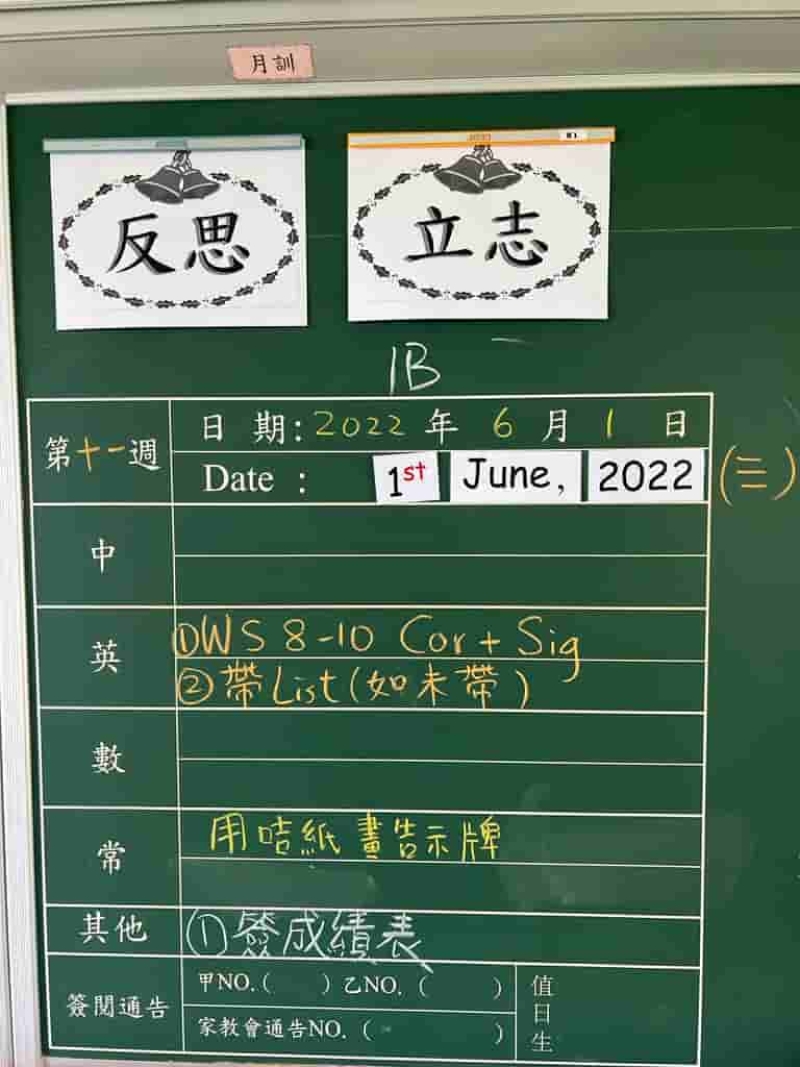 月訓
反思
立志
1B
第十一週
日 期: 2022 年 6 月 1 日
Date : 1st June, 2022 (三)
中
英
①WS 8-10 Cor + Sig
②帶List(如未帶)
數
常
用咭紙畫告示牌
其他
(1)簽成績表
簽閱通告
甲NO.( ) 乙NO. ( )
家教會通告NO. ( )
值日生